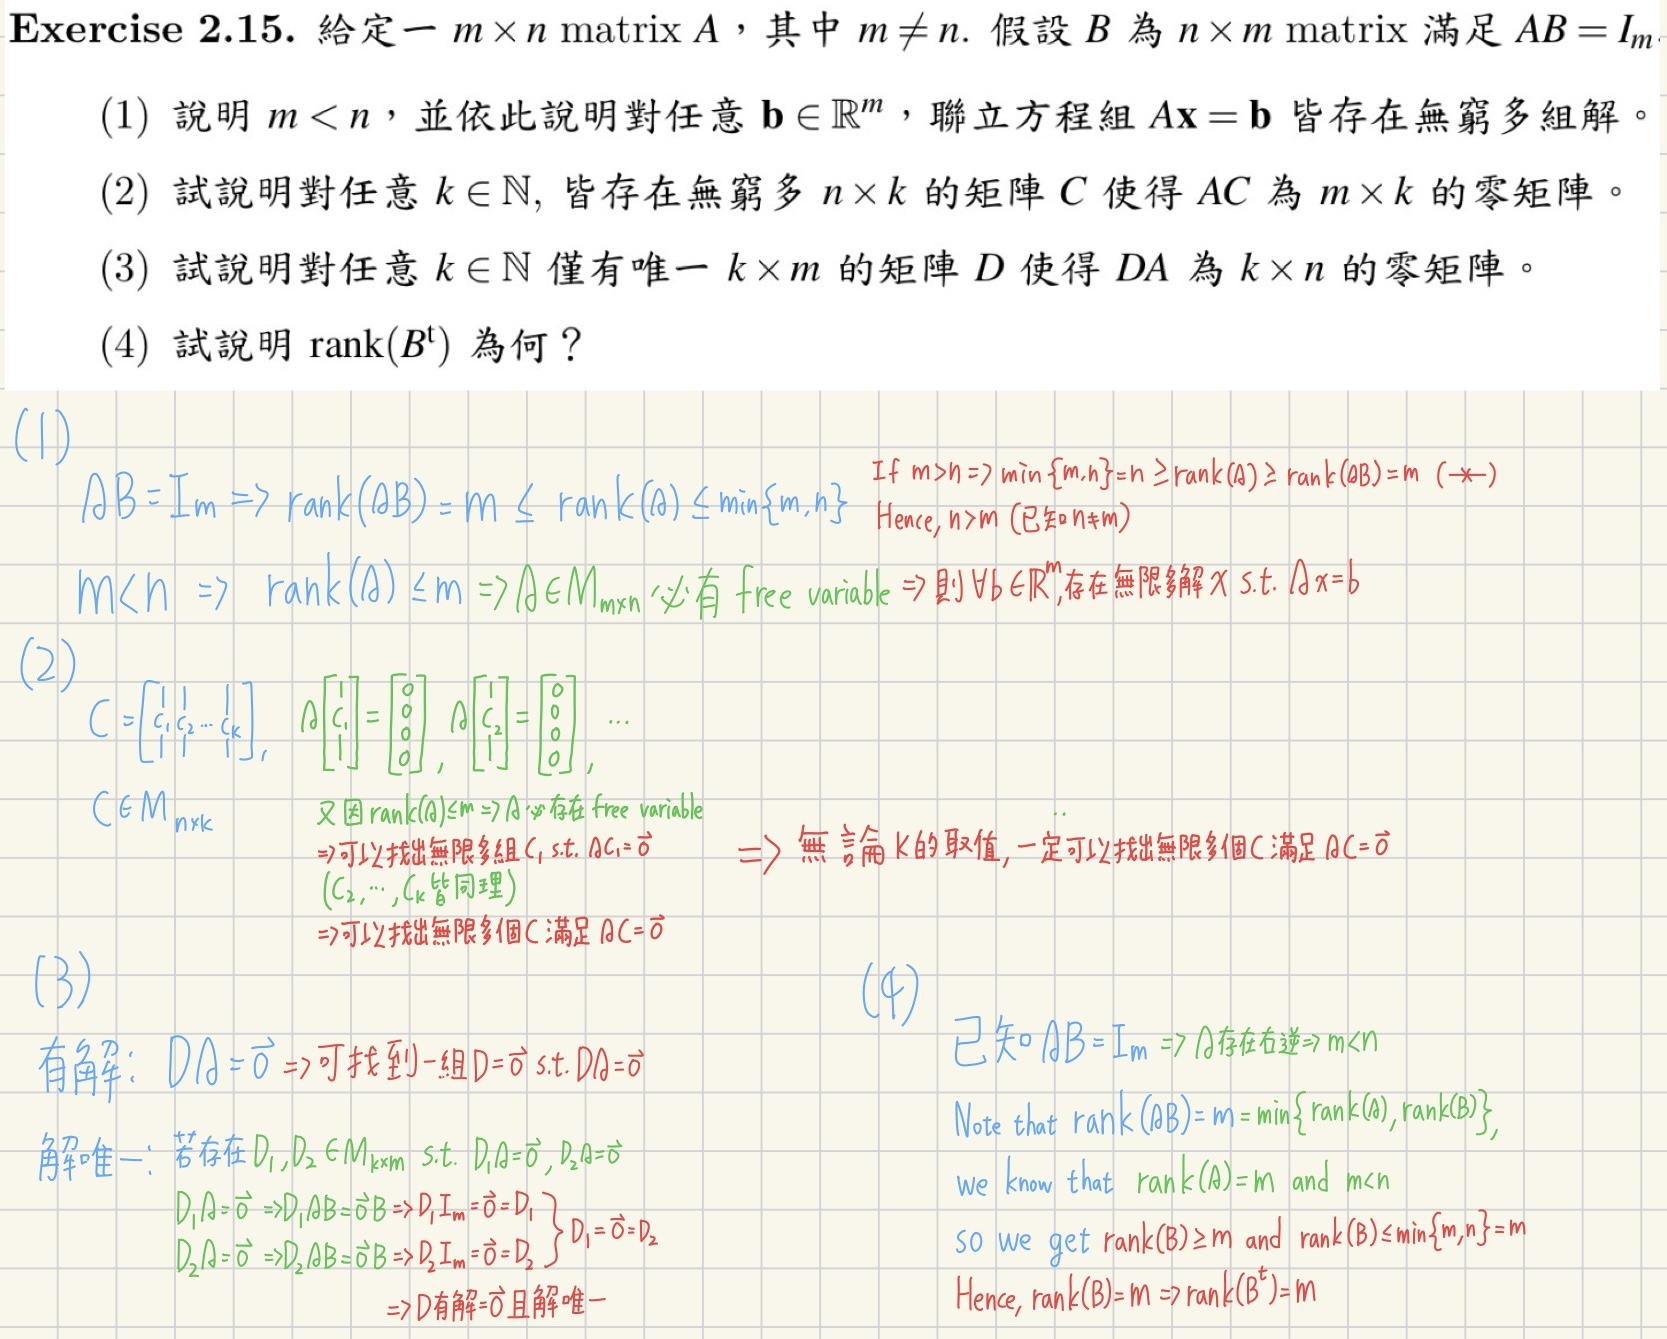 Exercise 2.15. 給定一 m × n matrix A，其中 m ≠ n. 假設 B 為 n × m matrix 滿足 AB = I_m.
(1) 說明 m < n，並依此說明對任意 b ∈ ℝ^m，聯立方程組 Ax = b 皆存在無窮多組解。
(2) 試說明對任意 k ∈ ℕ, 皆存在無窮多 n × k 的矩陣 C 使得 AC 為 m × k 的零矩陣。
(3) 試說明對任意 k ∈ ℕ 僅有唯一 k × m 的矩陣 D 使得 DA 為 k × n 的零矩陣。
(4) 試說明 rank(B^t) 為何？
(1)
AB = I_m => rank(AB) = m ≤ rank(A) ≤ min{m,n}
If m>n => min{m,n}=n ≥ rank(A) ≥ rank(AB)=m (→←)
Hence, n>m (已知n≠m)
m<n => rank(A) ≤ m => A∈M_{m×n} 必有 free variable => 則 ∀b∈ℝ^m, 存在無限多解 x s.t. Ax=b
(2)
C = [c₁ c₂ … c_k], A[c₁] = [0 0 0 0], A[c₂] = [0 0 0 0], …
C∈M_{n×k}
又因 rank(A)≤m => A必存在 free variable
=>可以找出無限多組 C₁ s.t. AC₁=0⃗
(C₂,…,C_k 皆同理)
=>可以找出無限多個C滿足 AC=0⃗
=> 無論 k的取值, 一定可以找出無限多個C滿足 AC=0⃗
(3)
有解: DA=0⃗ => 可找到一組 D=0⃗ s.t. DA=0⃗
解唯一: 若存在 D₁,D₂∈M_{k×m} s.t. D₁A=0⃗, D₂A=0⃗
D₁A=0⃗ => D₁AB=0⃗B => D₁I_m=0⃗=D₁
D₂A=0⃗ => D₂AB=0⃗B => D₂I_m=0⃗=D₂
} D₁=0⃗=D₂
=> D有解=0⃗且解唯一
(4)
已知 AB=I_m => A存在右逆 => m<n
Note that rank(AB)=m=min{rank(A),rank(B)},
we know that rank(A)=m and m<n
so we get rank(B)≥m and rank(B)≤min{m,n}=m
Hence, rank(B)=m => rank(B^t)=m